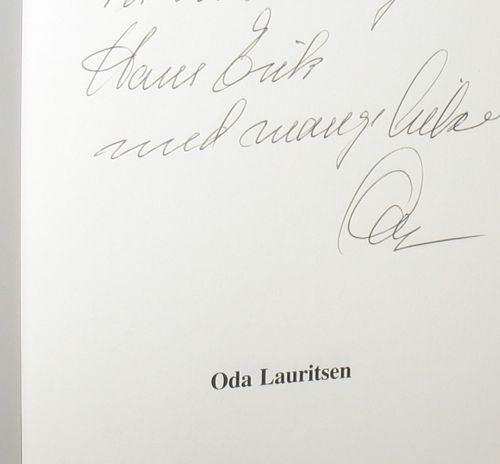 Hans Erik
med mange hilse
Oda
Oda Lauritsen